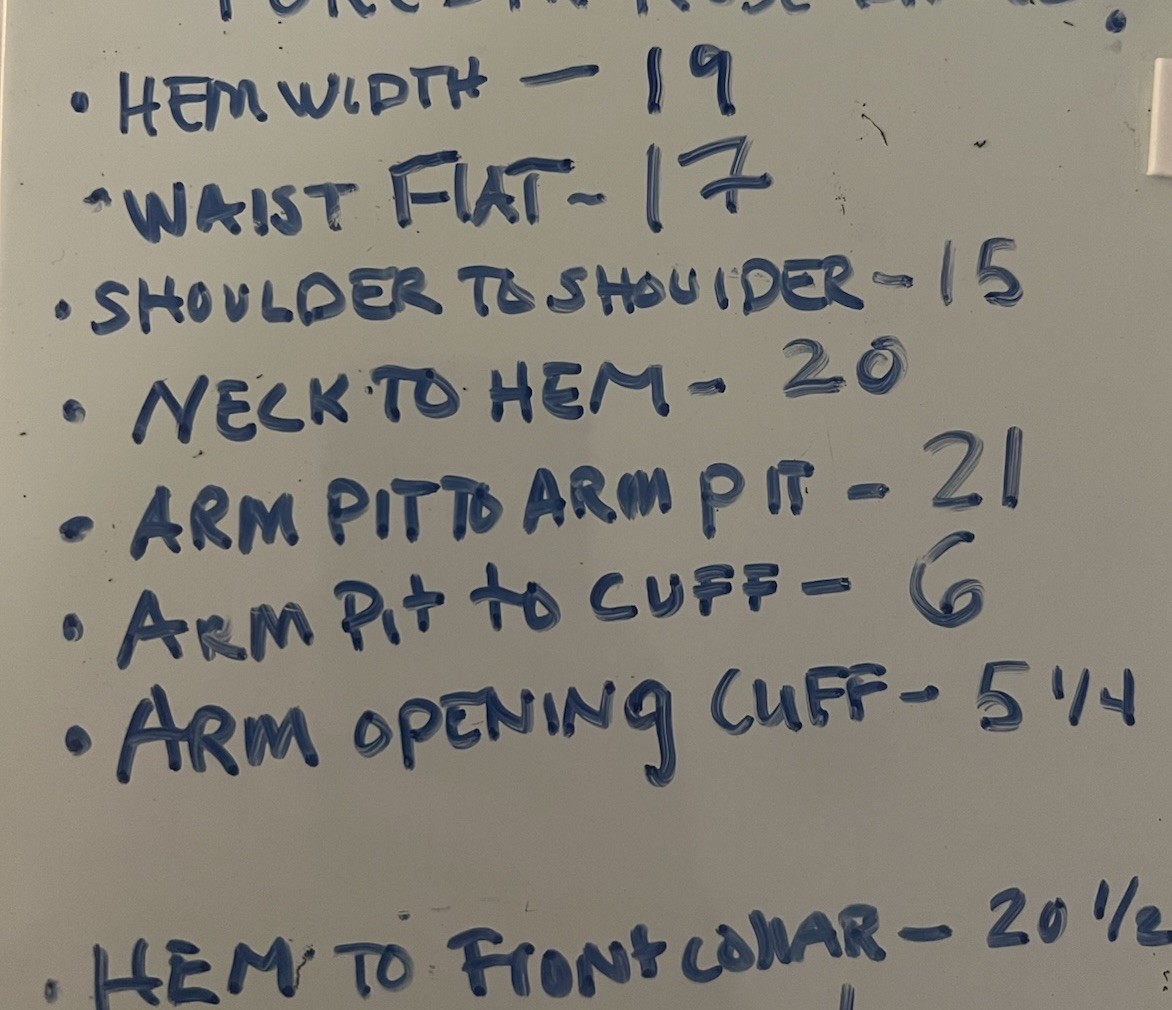 • HEM WIDTH — 19
• WAIST FLAT - 17
• SHOULDER TO SHOULDER - 15
• NECK TO HEM - 20
• ARM PIT TO ARM PIT - 21
• ARM Pit to CUFF - 6
• ARM OPENING CUFF - 5 1/4
• HEM TO FRONT COLLAR - 20 1/2